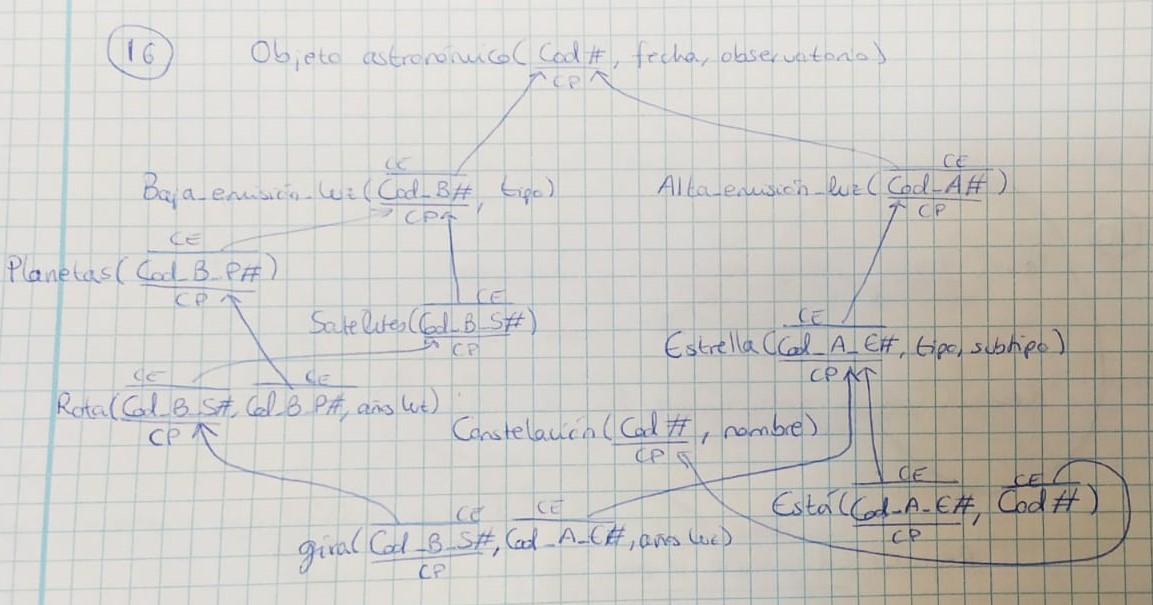 16 Objeto astronómico( Cod#, fecha, observatorio)
CP
CE CE
Baja_emisión_luz( Cod_B#, tipo) Alta_emisión_luz( Cod_A# )
CP CP
CE
Planetas( Cod_B_P#)
CP
CE
Satelites(Cod_B_S#)
CP
CE
Estrella(Cod_A_E#, tipo, subtipo)
CP
CE CE
Rota(Cod_B_S#, Cod_B_P#, años luz)
CP
Constelación( Cod#, nombre)
CP
CE CE
Está(Cod_A_E#, Cod#)
CP
CE CE
gira( Cod_B_S#, Cod_A_E#, años luz)
CP